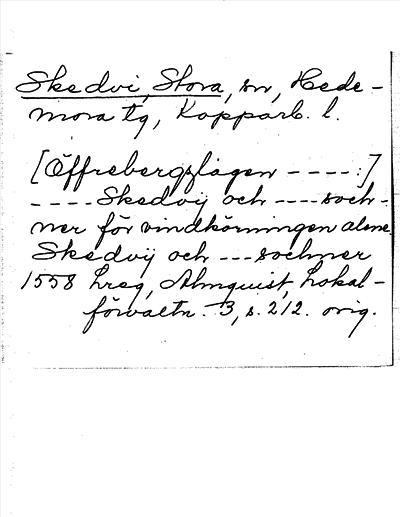 Skedvi, Stora, sn, Hede-
mora tg, Kopparb. l.
[Öffrebergzlagen ----:]
----Skedvij och ----soch-
ner för vindkörningen alene.
Skedvij och ---sochner
1558 hreg, Almquist, Lokal-
förvaltn. 3, s. 212. orig.